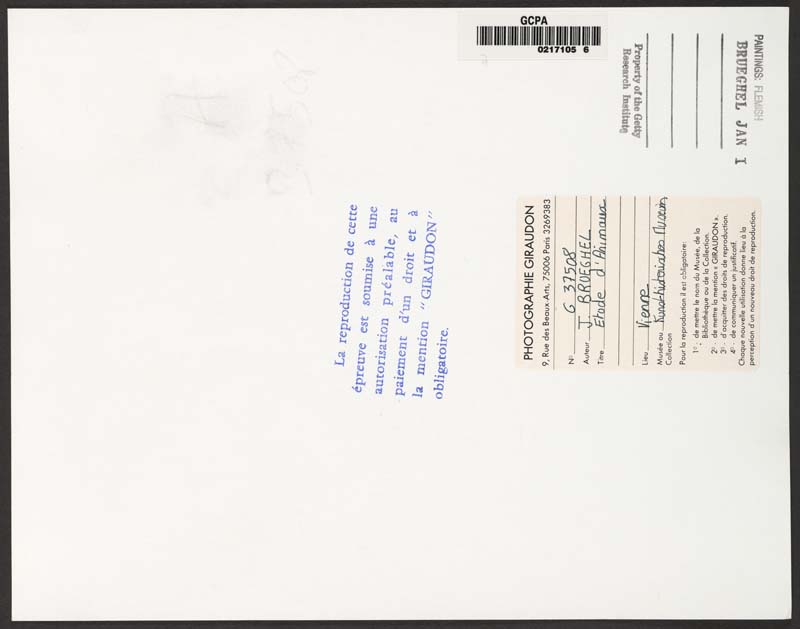 GCPA
0217105 6
PAINTINGS: FLEMISH
BRUEGHEL JAN I
Property of the Getty
Research Institute
La reproduction de cette
épreuve est soumise à une
autorisation préalable, au
paiement d'un droit et à
la mention "GIRAUDON"
obligatoire.
PHOTOGRAPHIE GIRAUDON
9, Rue des Beaux Arts, 75006 Paris 3269383
N° G 37508
Auteur J. BRUEGHEL
Titre Etude d'Animaux
Lieu Vienne
Musée ou Kunsthistorisches Museum
Collection
Pour la reproduction il est obligatoire:
1° - de mettre le nom du Musée, de la
Bibliothèque ou de la Collection.
2° - de mettre la mention « GIRAUDON ».
3° - d'acquitter des droits de reproduction.
4° - de communiquer un justificatif.
Chaque nouvelle utilisation donne lieu à la
perception d'un nouveau droit de reproduction.